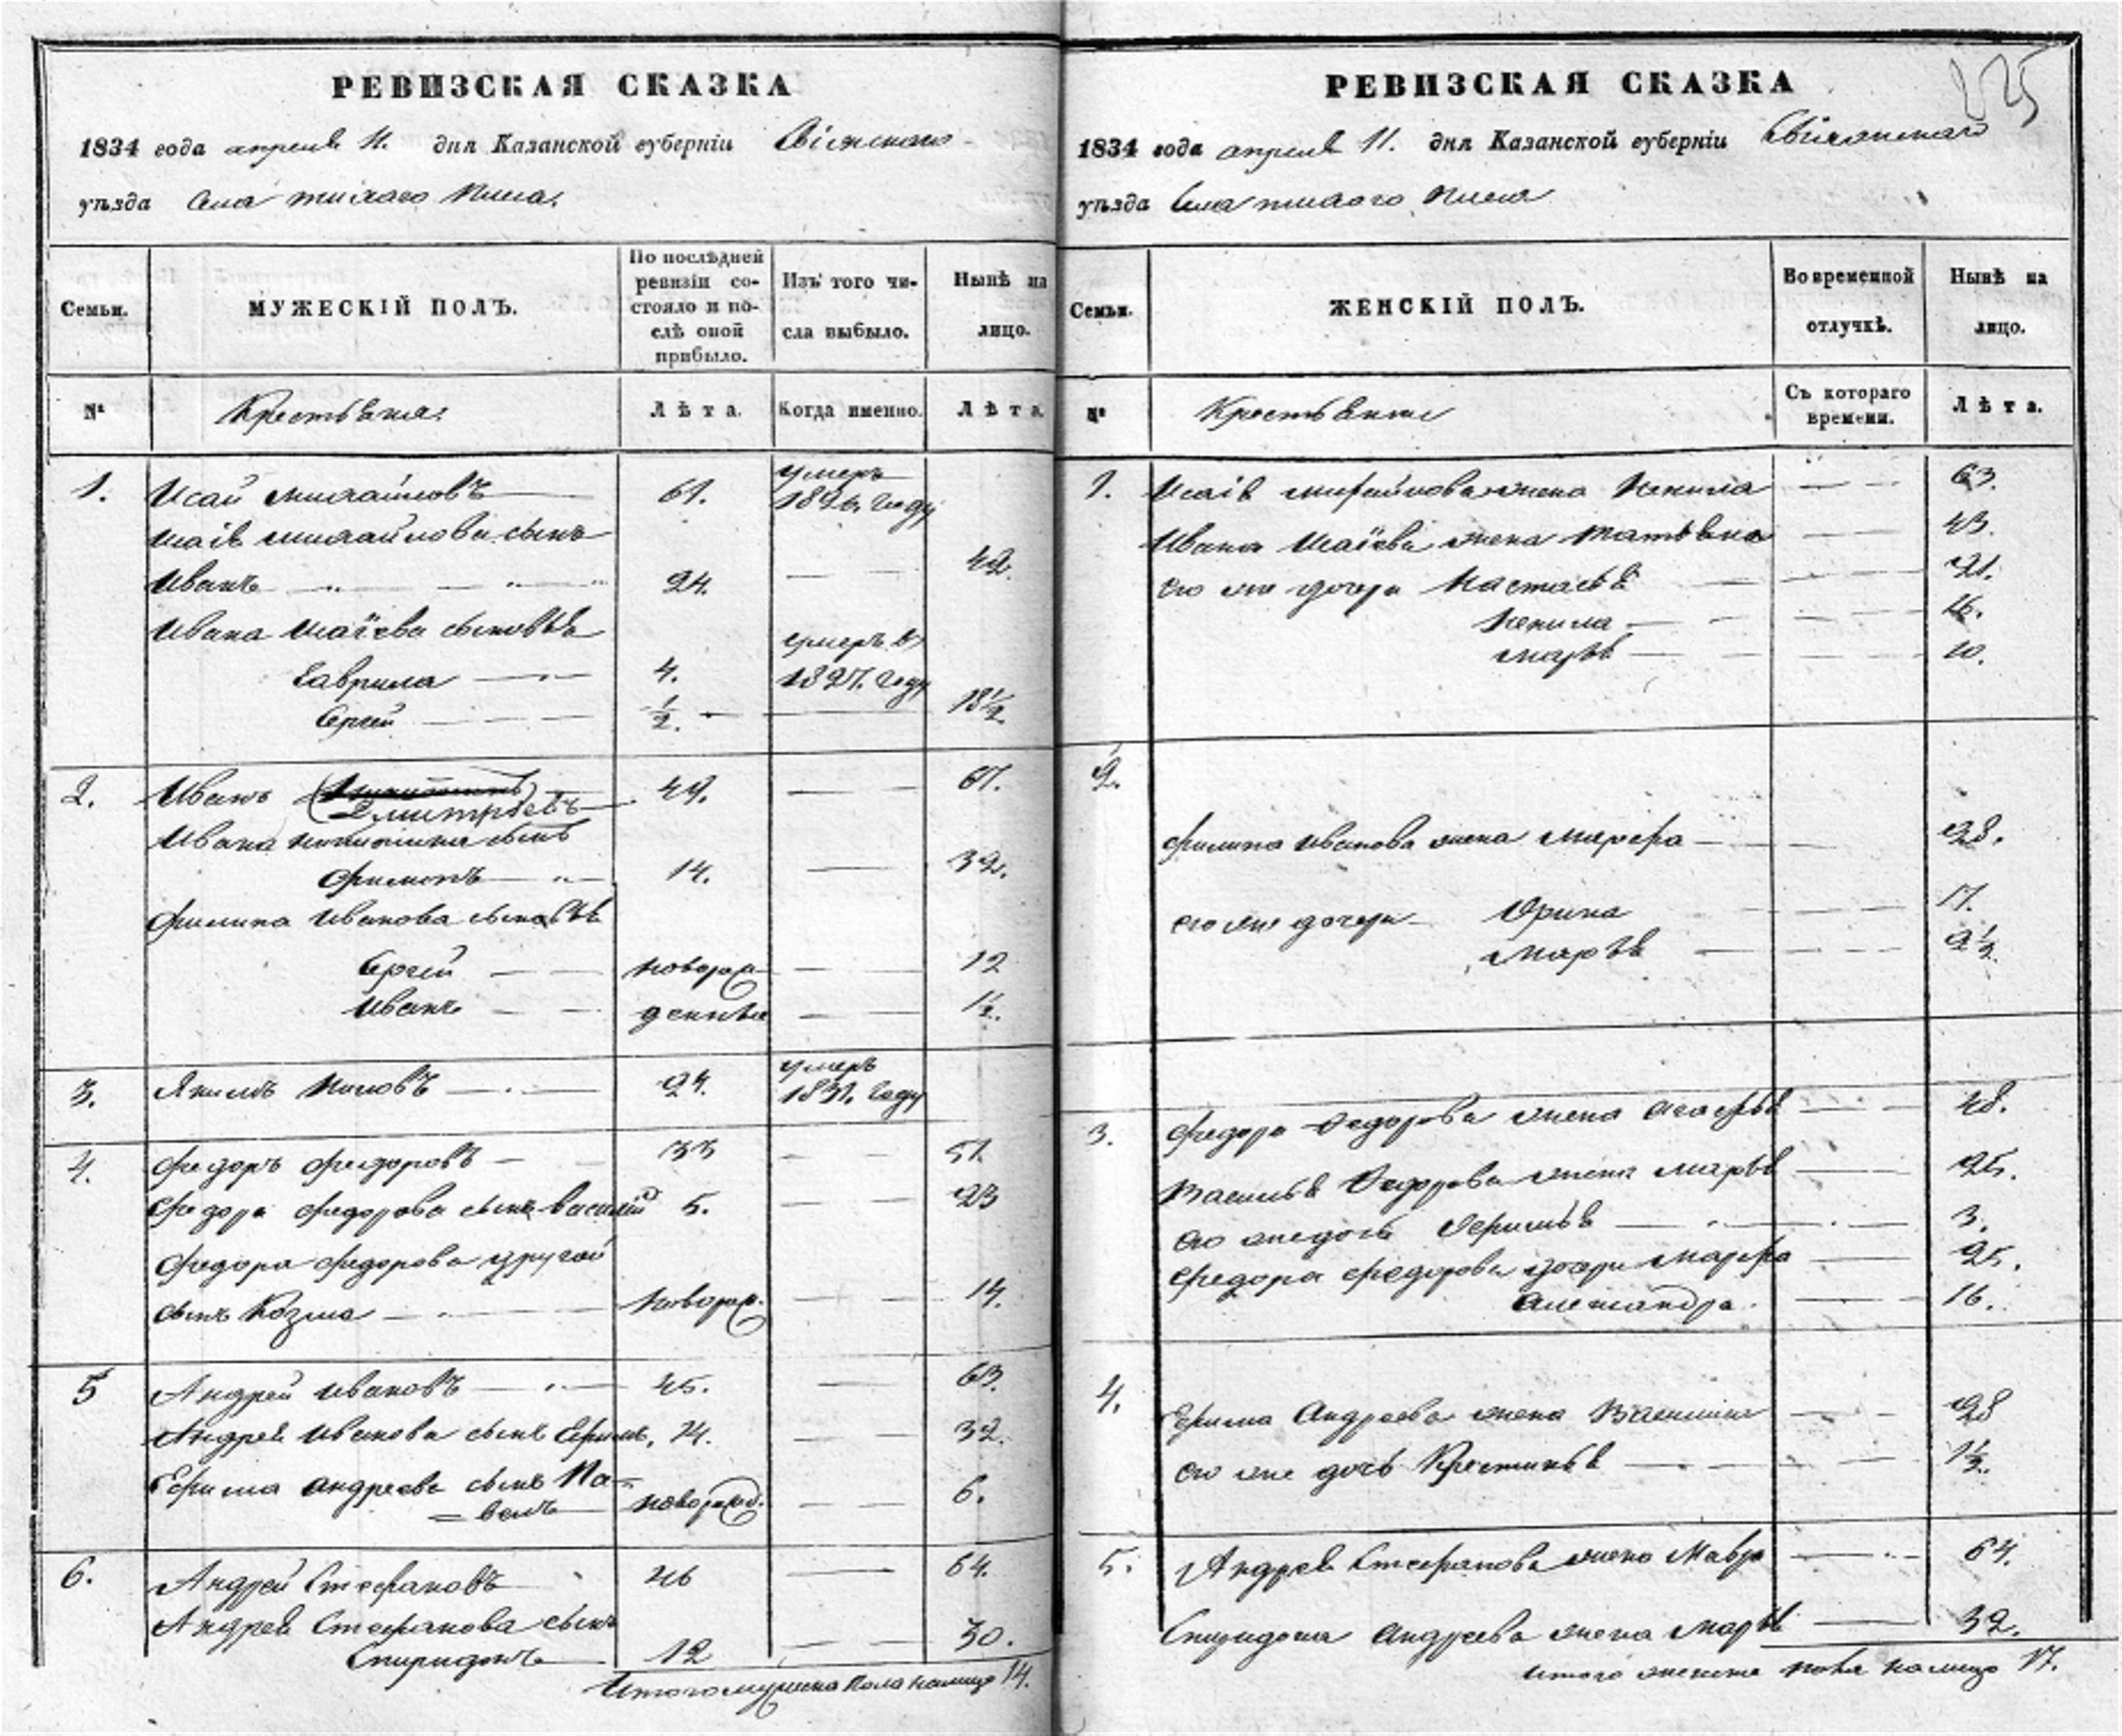 РЕВИЗСКАЯ СКАЗКА
1834 года апреля 11. дня Казанской губерніи Свіяжскаго
уѣзда села
Семьи.
МУЖЕСКІЙ ПОЛЪ.
По послѣдней
ревизіи со-
стояло и по-
слѣ оной
прибыло.
Изъ того чи-
сла выбыло.
Нынѣ на
лицо.
№
Крестьяне
Лѣта.
Когда именно.
Лѣта
1. Исай Михайловъ 61. умеръ
1826. году
Исаія Михайлова сынъ
Иванъ 24. 42.
Ивана Исаіева сыновья
Гаврила 4. умеръ в
1827. году
Сергей ½. 18½
2. Иванъ Дмитріевъ 49. 67.
Ивана сынъ
Филипъ 14. 32.
Филипа Иванова сыновья
Сергей новорож- 12
Иванъ денныя 1½.
3. Якимъ 24. умеръ
1831. году
4. Федоръ Федоровъ 33 51.
Федора Федорова сынъ Василій 5. 23
Федора Федорова другой
сынъ Козма новорож. 14.
5 Андрей Ивановъ 45. 63.
Андрея Иванова сынъ Ефимъ, 14. 32.
Ефима Андреева сынъ Па-
=велъ новорожд. 6.
6. Андрей Стефановъ 46 64.
Андрея Стефанова сынъ
Спиридонъ 12 30.
Итого мужеска пола налицо 14.
РЕВИЗСКАЯ СКАЗКА
225
1834 года апреля 11. дня Казанской губерніи Свіяжскаго
уѣзда села
Семьи.
ЖЕНСКІЙ ПОЛЪ.
Во временной
отлучкѣ.
Нынѣ на
лицо.
№
Крестьянки
Съ котораго
времени.
Лѣта.
1. Исаія Михайлова жена 63.
Ивана Исаіева жена Татьяна 43.
его же дочери Настасья 21.
16.
Марья 10.
2.
Филипа Иванова жена Марфа 28.
его же дочери Орина 17.
Марья 2½.
3. Федора Федорова жена Агафья 48.
Василья Федорова жена Марья 25.
его же дочь 3.
Федора Федорова дочери Марфа 25.
Александра 16.
4. Ефима Андреева жена 28
его же дочь 1½.
5. Андрея Стефанова жена Мавра 64.
Спиридона Андреева жена Марья 32.
итого женска пола налицо 17.